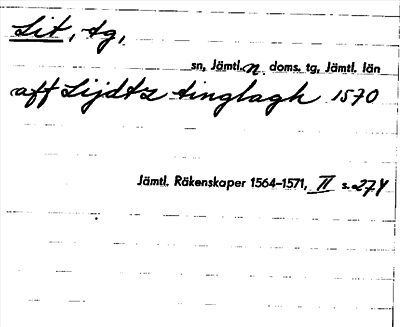 Lit, tg,
sn, Jämtl. n. doms. tg, Jämtl. län
aff Lijdtz tinglagh 1570
Jämtl. Räkenskaper 1564–1571, II s. 274